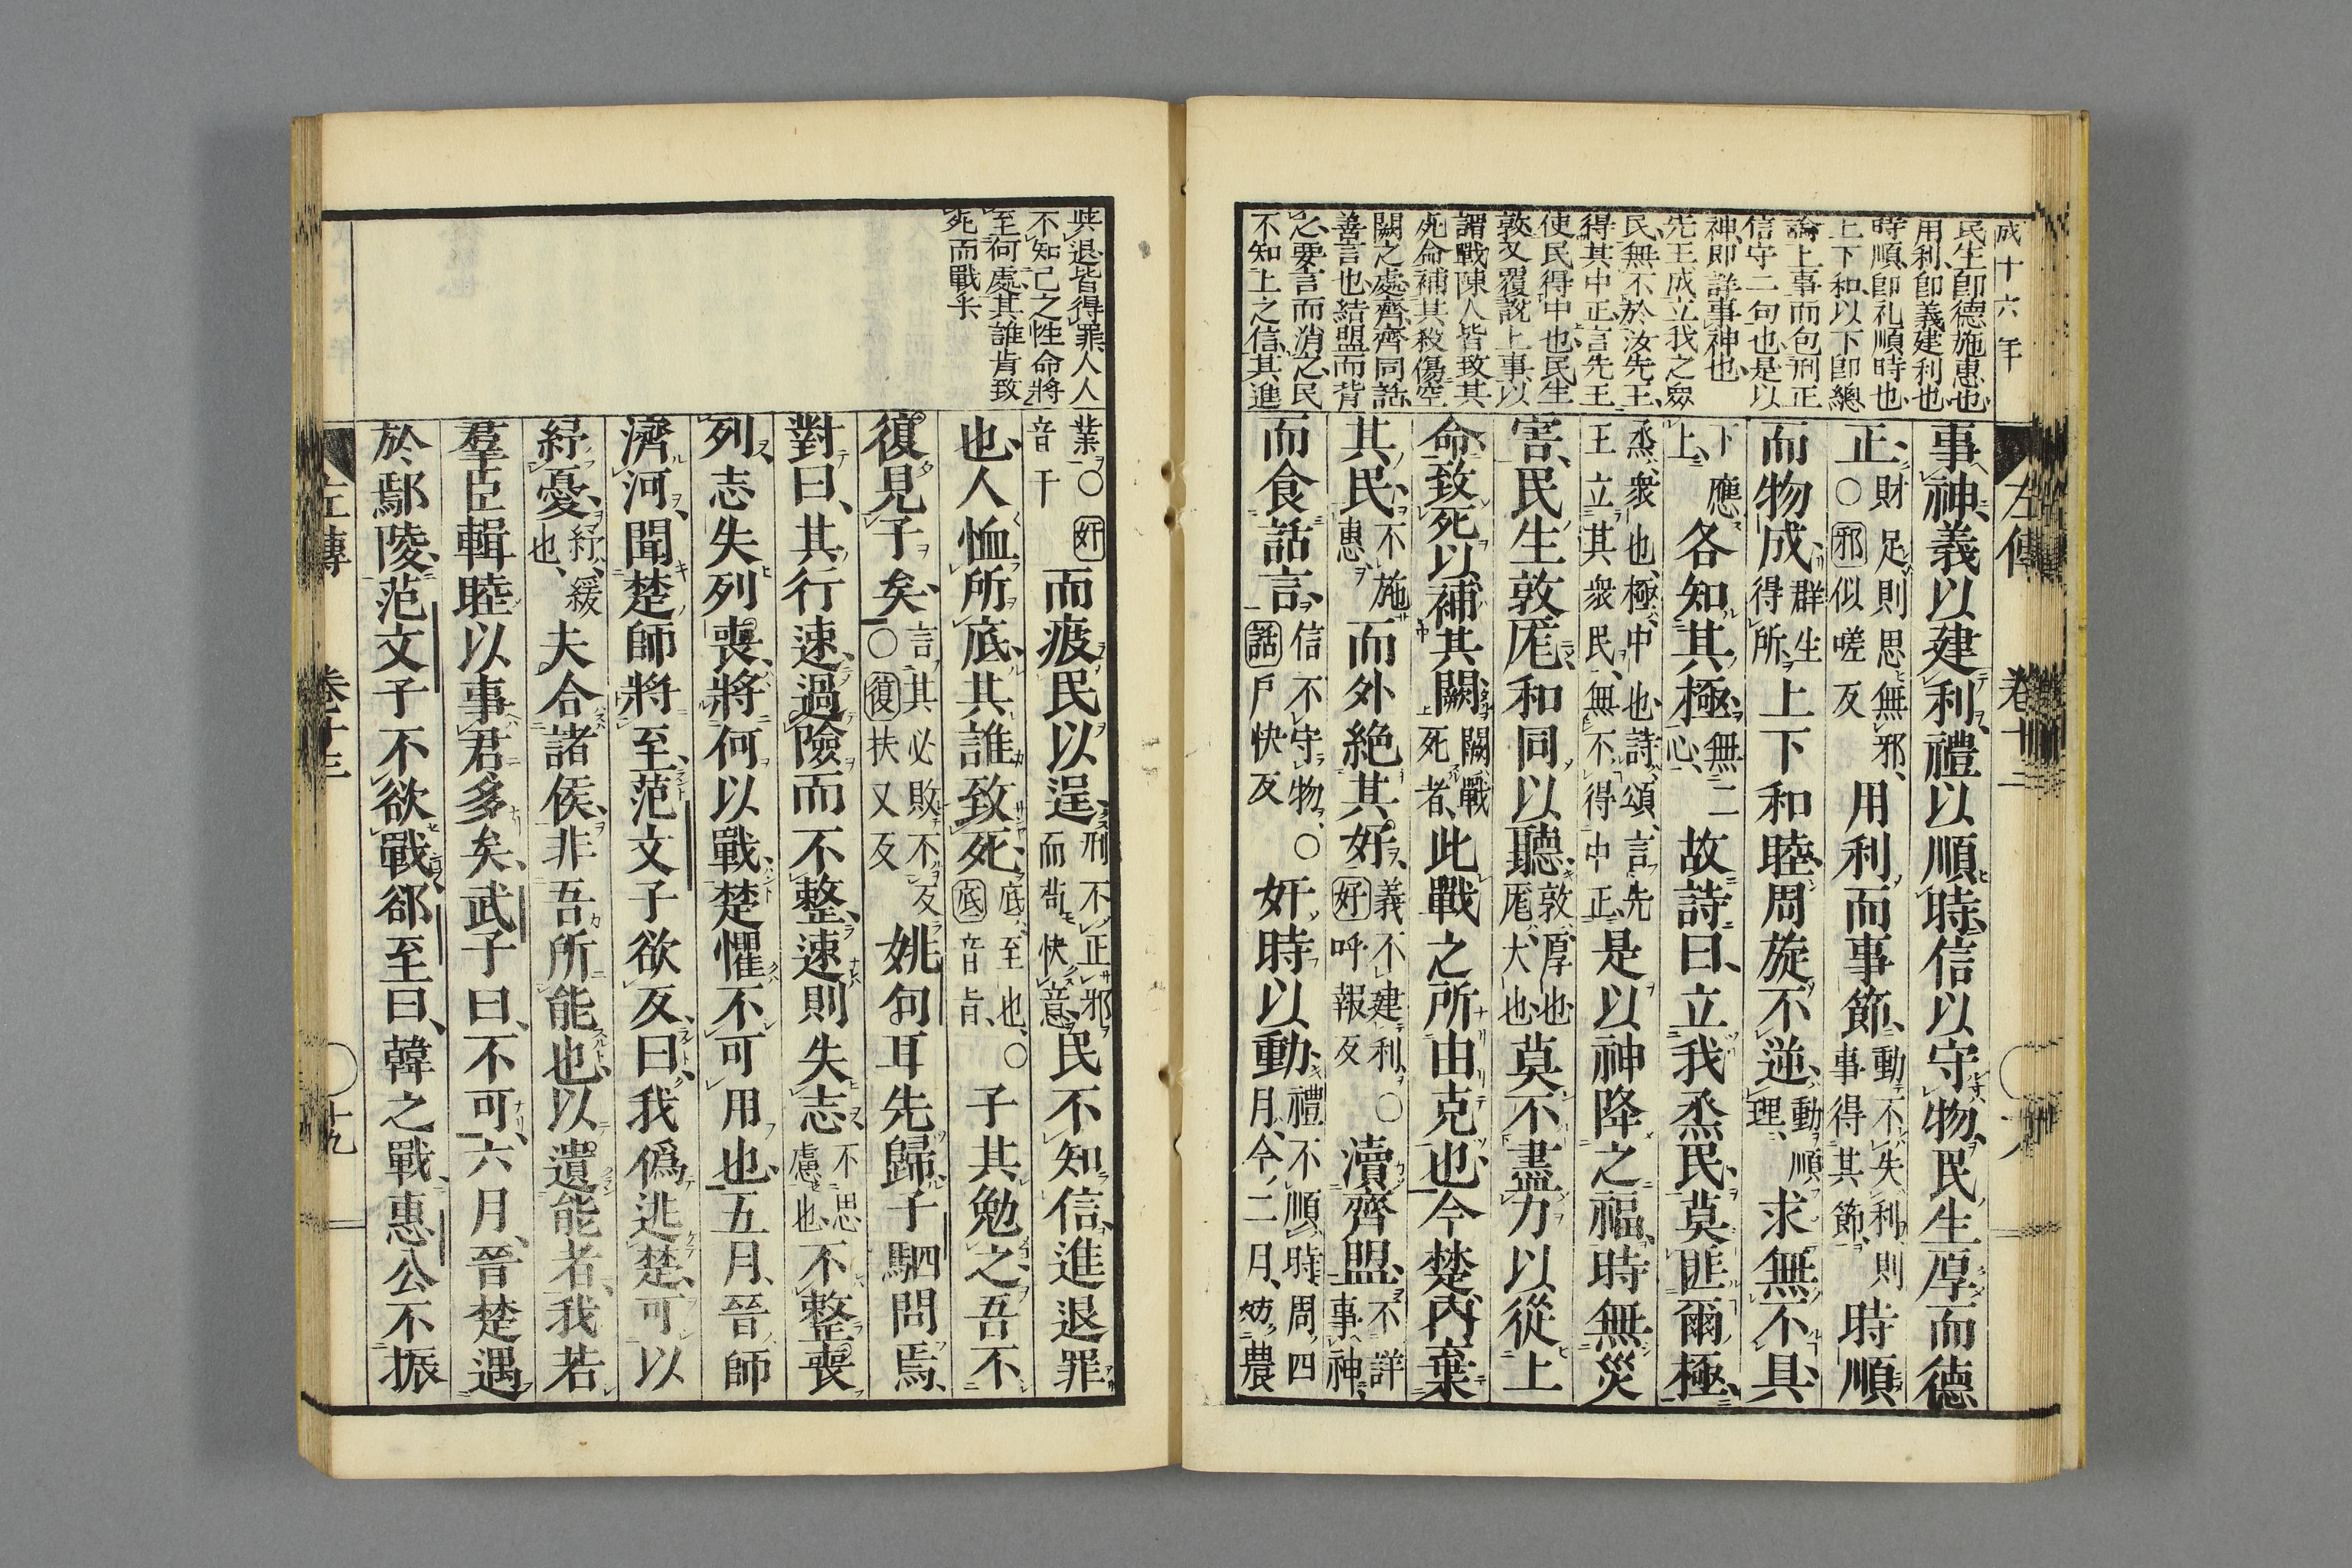 成十六年
民生即德施惠也
用利即義建利也
時順即礼順時也
上下和以下即總
論上事而包刑正
信守二句也是以
神即詳事神也
先王成立我之衆
民無不於汝先王
得其中正言先王
使民得中也民生
敦又覆說上事以
謂戰陳人皆致其
死命補其殺傷空
闕之處齊齊同話
善言也結盟而背
之要言而消之民
不知上之信其進
左傳 卷十三
事神義以建利禮以順時信以守物民生厚而德
正財足則思無邪○邪似嗟反用利而事節動不失利則事得其節時順
而物成群生得所上下和睦周旋不逆動順理求無不具
下應上各知其極無二心故詩曰立我烝民莫匪爾極
烝衆也極中也詩頌言先王立其衆民無不得中正是以神降之福時無災
害民生敦厖和同以聽敦厚也厖大也莫不盡力以從上
命致死以補其闕闕戰死者此戰之所由克也今楚內棄
其民不施惠而外絶其好義不建利○好呼報反瀆齊盟不詳事神
而食話言信不守物○話戶快反奸時以動禮不順時周四月今二月妨農
業○奸音干而疲民以逞刑不正邪而苟快意民不知信進退罪
也人恤所底其誰致死底至也○底音旨子其勉之吾不
復見子矣言其必敗不反○復扶又反姚句耳先歸子駟問焉
對曰其行速過險而不整速則失志不思慮也不整喪
列志失列喪將何以戰楚懼不可用也五月晉師
濟河聞楚師將至范文子欲反曰我僞逃楚可以
紓憂紓緩也夫合諸侯非吾所能也以遺能者我若
羣臣輯睦以事君多矣武子曰不可六月晉楚遇
於鄢陵范文子不欲戰郤至曰韓之戰惠公不振
其退皆得罪人人
不知己之性命將
至何處其誰肯致
死而戰乎
左傳 卷十三 十九